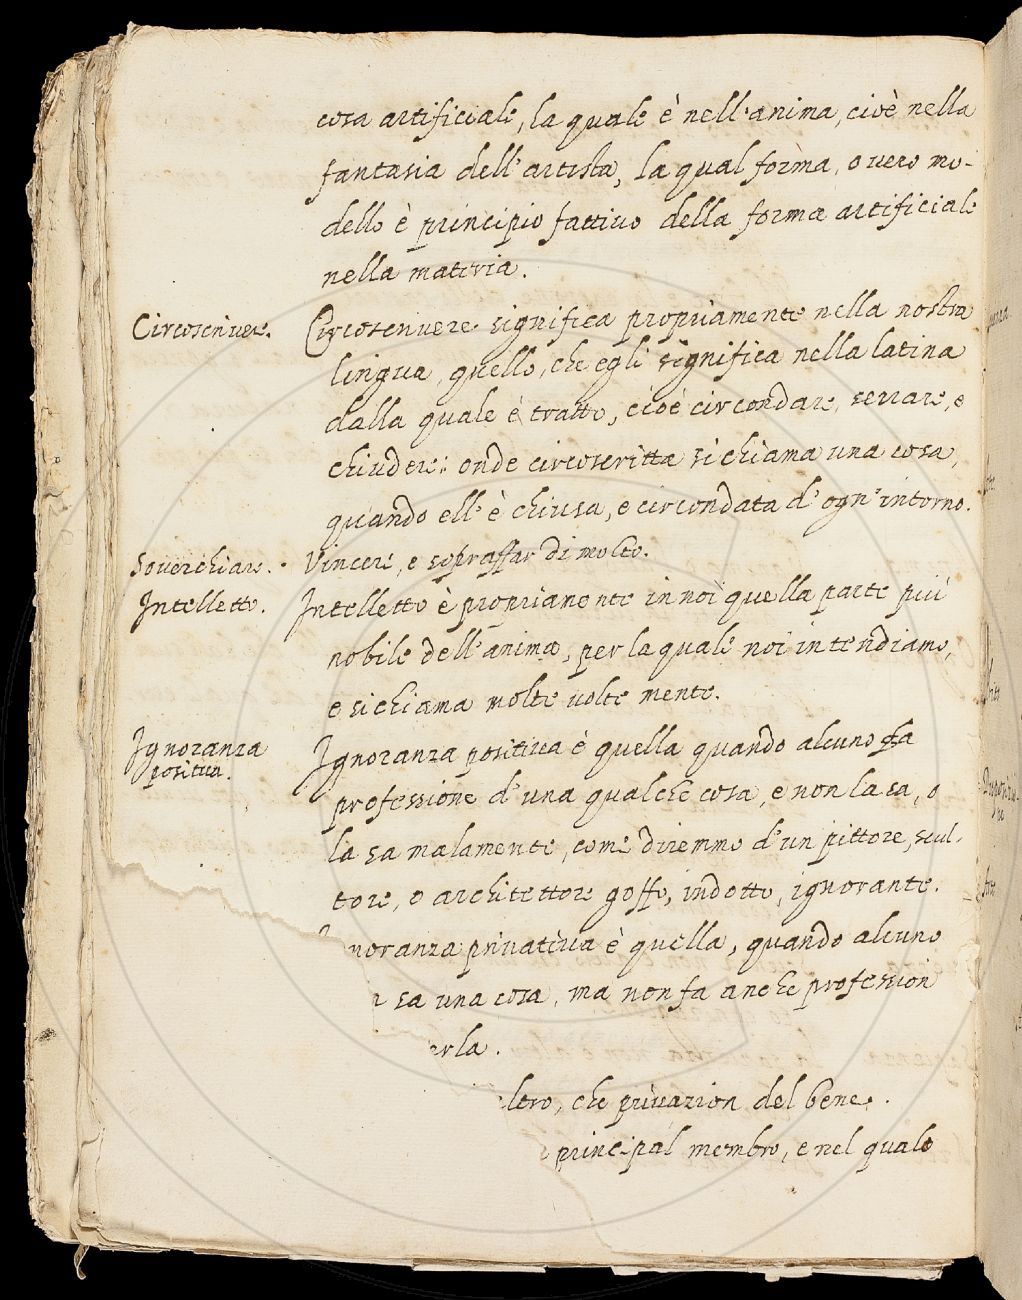 cosa artificiale, la quale è nell'anima, cioè nella
fantasia dell'artista, la qual forma, o vero mo-
dello è principio fattivo della forma artificiale
nella materia.
Circoscrivere. Circoscrivere significa propriamente nella nostra
lingua, quello, che egli significa nella latina
dalla quale è tratto, cioè circondare, serrare, e
chiudere: onde circoscritta si chiama una cosa,
quando ell'è chiusa, e circondata d'ogn'intorno.
Soverchiare. Vincere, e sopraffar di molto.
Intelletto. Intelletto è propriamente in noi quella parte più
nobile dell'anima, per la quale noi intendiamo,
e si chiama molte volte mente.
Ignoranza Ignoranza positiva è quella quando alcuno fa
positiva. professione d'una qualche cosa, e non la sa, o
la sa malamente, come diremmo d'un pittore, scul-
tore, o architettore goffo, indotto, ignorante.
noranza privativa è quella, quando alcuno
sa una cosa, ma non fa anche profession
erla.
ltro, che privazion del bene.
principal membro, e nel quale